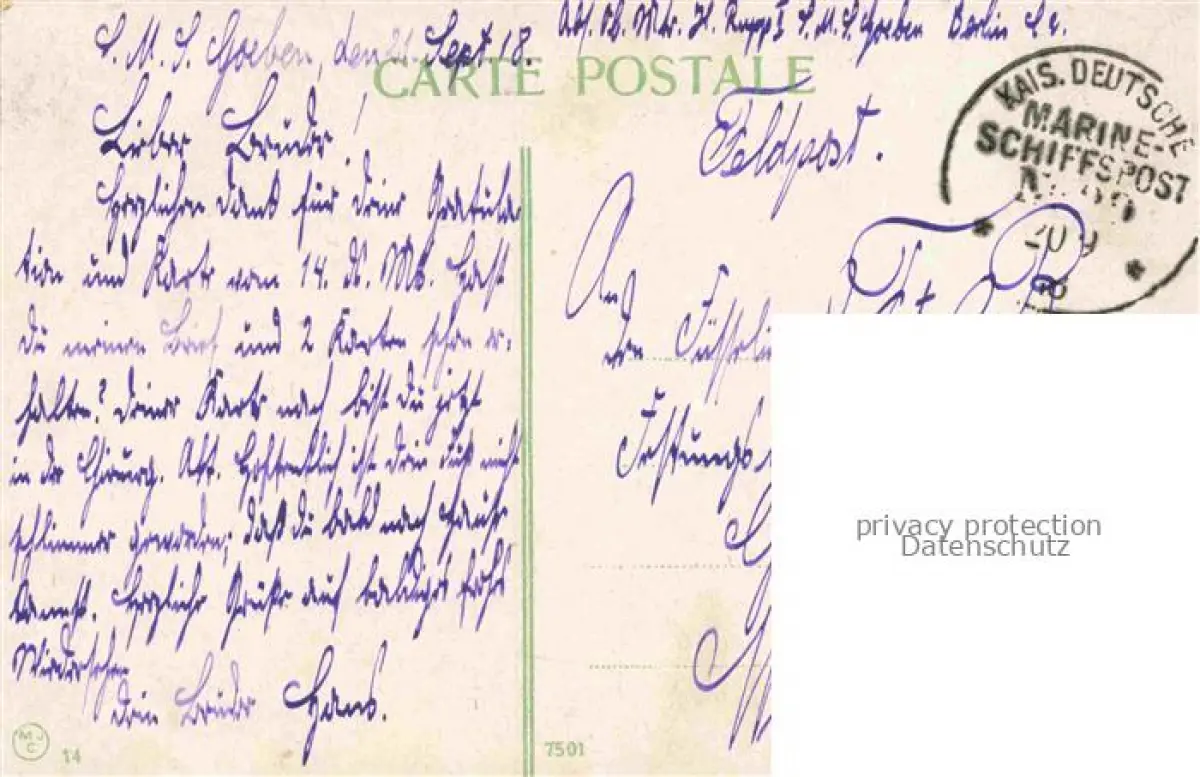 S. M. S. Goeben, den 21. Sept 18.
Abs. Ob. Mtr. H. Rupp I S. M. S. Goeben Berlin
CARTE POSTALE
Lieber Bruder!
Herzlichen Dank für Deine Gratula-
tion und Karte vom 14. ds. Mts. Hast
Du meinen Brief und 2 Karten schon er-
halten? Deiner Karte nach bist Du jetzt
in der Chirurg. Abt. Hoffentlich ist Dein Fuß nicht
schlimmer geworden, daß Du bald nach Hause
kannst. Herzliche Grüße auf baldiges frohes
Wiedersehen
Dein Bruder Hans.
MJC
14
7501
Feldpost.
KAIS. DEUTSCHE
MARINE-
SCHIFFSPOST
An
den Füsselier
Festungs
privacy protection
Datenschutz